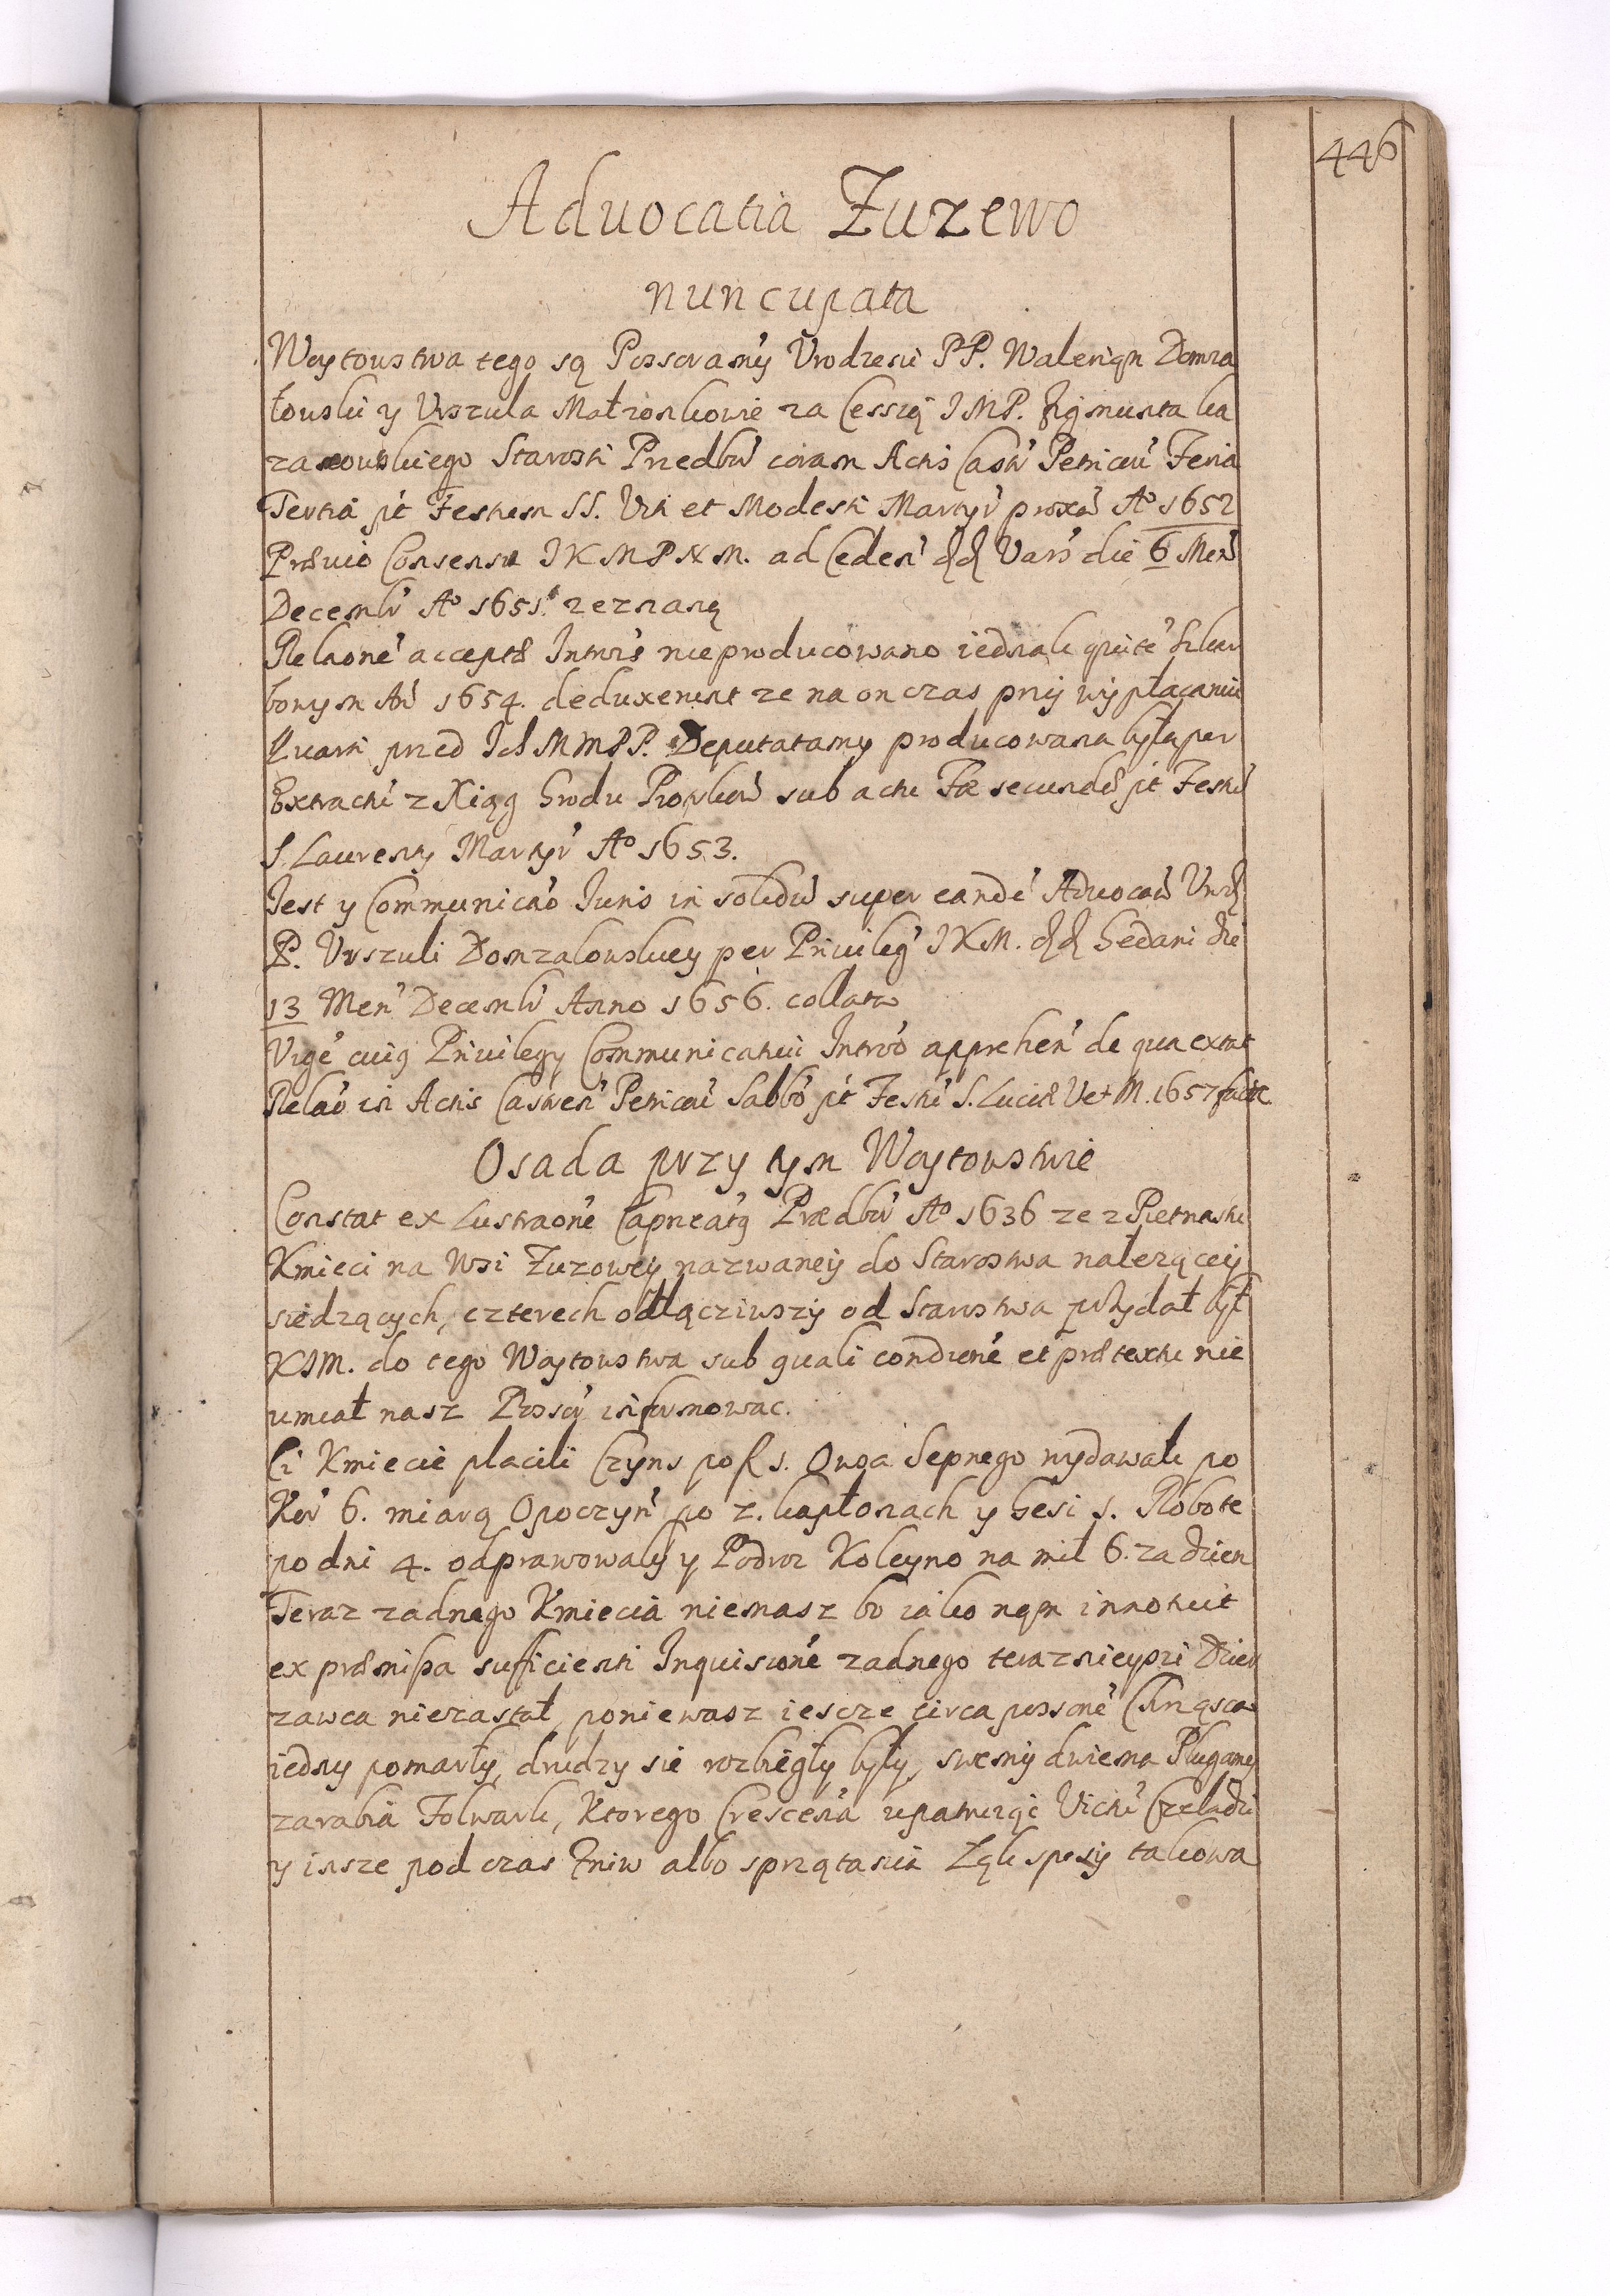 446
Aduocatia Zuzewo
nuncupata
Woytowstwa tego są Possoramy Urodzeni PP. Waleryan Domza
łowski y Urszula Małzonkowie za Cessią JMP. Zygmunta
Starosti Przedbō coram Actis Castr̄ Petricou̅ Feria
Tertia p̄t Festum SS. Viti et Modesti Martyr̄ prox̄a Aō 1652
Præuio Consensu JKMPNM. ad Ceden̄ Vars̄ die 6 Men̄
Decemb̄r Aō 1651. zeznaną
Relaōne̅ acceptæ Intro̅s nieproducowano iednak quite̅ Skar
bowym An̄ 1654. deduxerunt ze na on czas przy wypłaceniu
Kwarti przed Ich MMPP. Deputatamy producowana była per
Extractu̅ z Xiąg Grodu sub actu Fæ secundæ p̄t Festu̅
S. Laurenty Martyr̄ Aō 1653.
Jest y Communicao̅ Juris in solidu̅ super eande̅ Aduocaō Urō
P. Urszuli Domzalowskiey per Priuileg̅ JKM. Gedani die
13 Men̄ Decemb̄r Anno 1656. collata
Vige̅ cuig Priuilegy Communicatiui Intro̅ apprehen̅ de qua extat
Relaō in Actis Castren̄ Petricou̅ Sabbō p̄t Festu̅ S. Luciæ V et M. 1657 facta
Osada przy tym Woytowstwie
Constat ex Lustraōne̅ Capneatg Prædbō Aō 1636 ze z Pietnastu
Kmieci na Wsi Zuzowey nazwaney do Starostwa nałezącey
siedzących, czterech odłącziwszy od Starostwa przydał był
KJM. do tego Woytowstwa sub quali condicne̅ et prætextu nie
umiał nasz Possor̄ informowac.
Ci Kmiecie placili Czyns po f 1. Owsa Sepnego wydawali po
Kor̄ 6. miarą Opoczyn̄ po 2. kapłonach y Gesi 1. Robote
po dni 4. odprawowały y Podroz Koleyno na mil 6. za dzien
Teraz zadnego Kmiecia niemasz bo iako nąm innotuit
ex præmißa sufficienti Inquisicne̅ zadnego teraznieyszi Dzier
zawca niezastał, poniewasz iescze circa possone̅
iedny pomarły, drudzy sie rozbiegły były, swemy dwiema Plugamy
zarabia Folwark, Ktorego Crescen̅a upatruiąc Victu̅ Czeladzi
y insze pod czas Zniw albo sprzątania Ląk spesy takowa